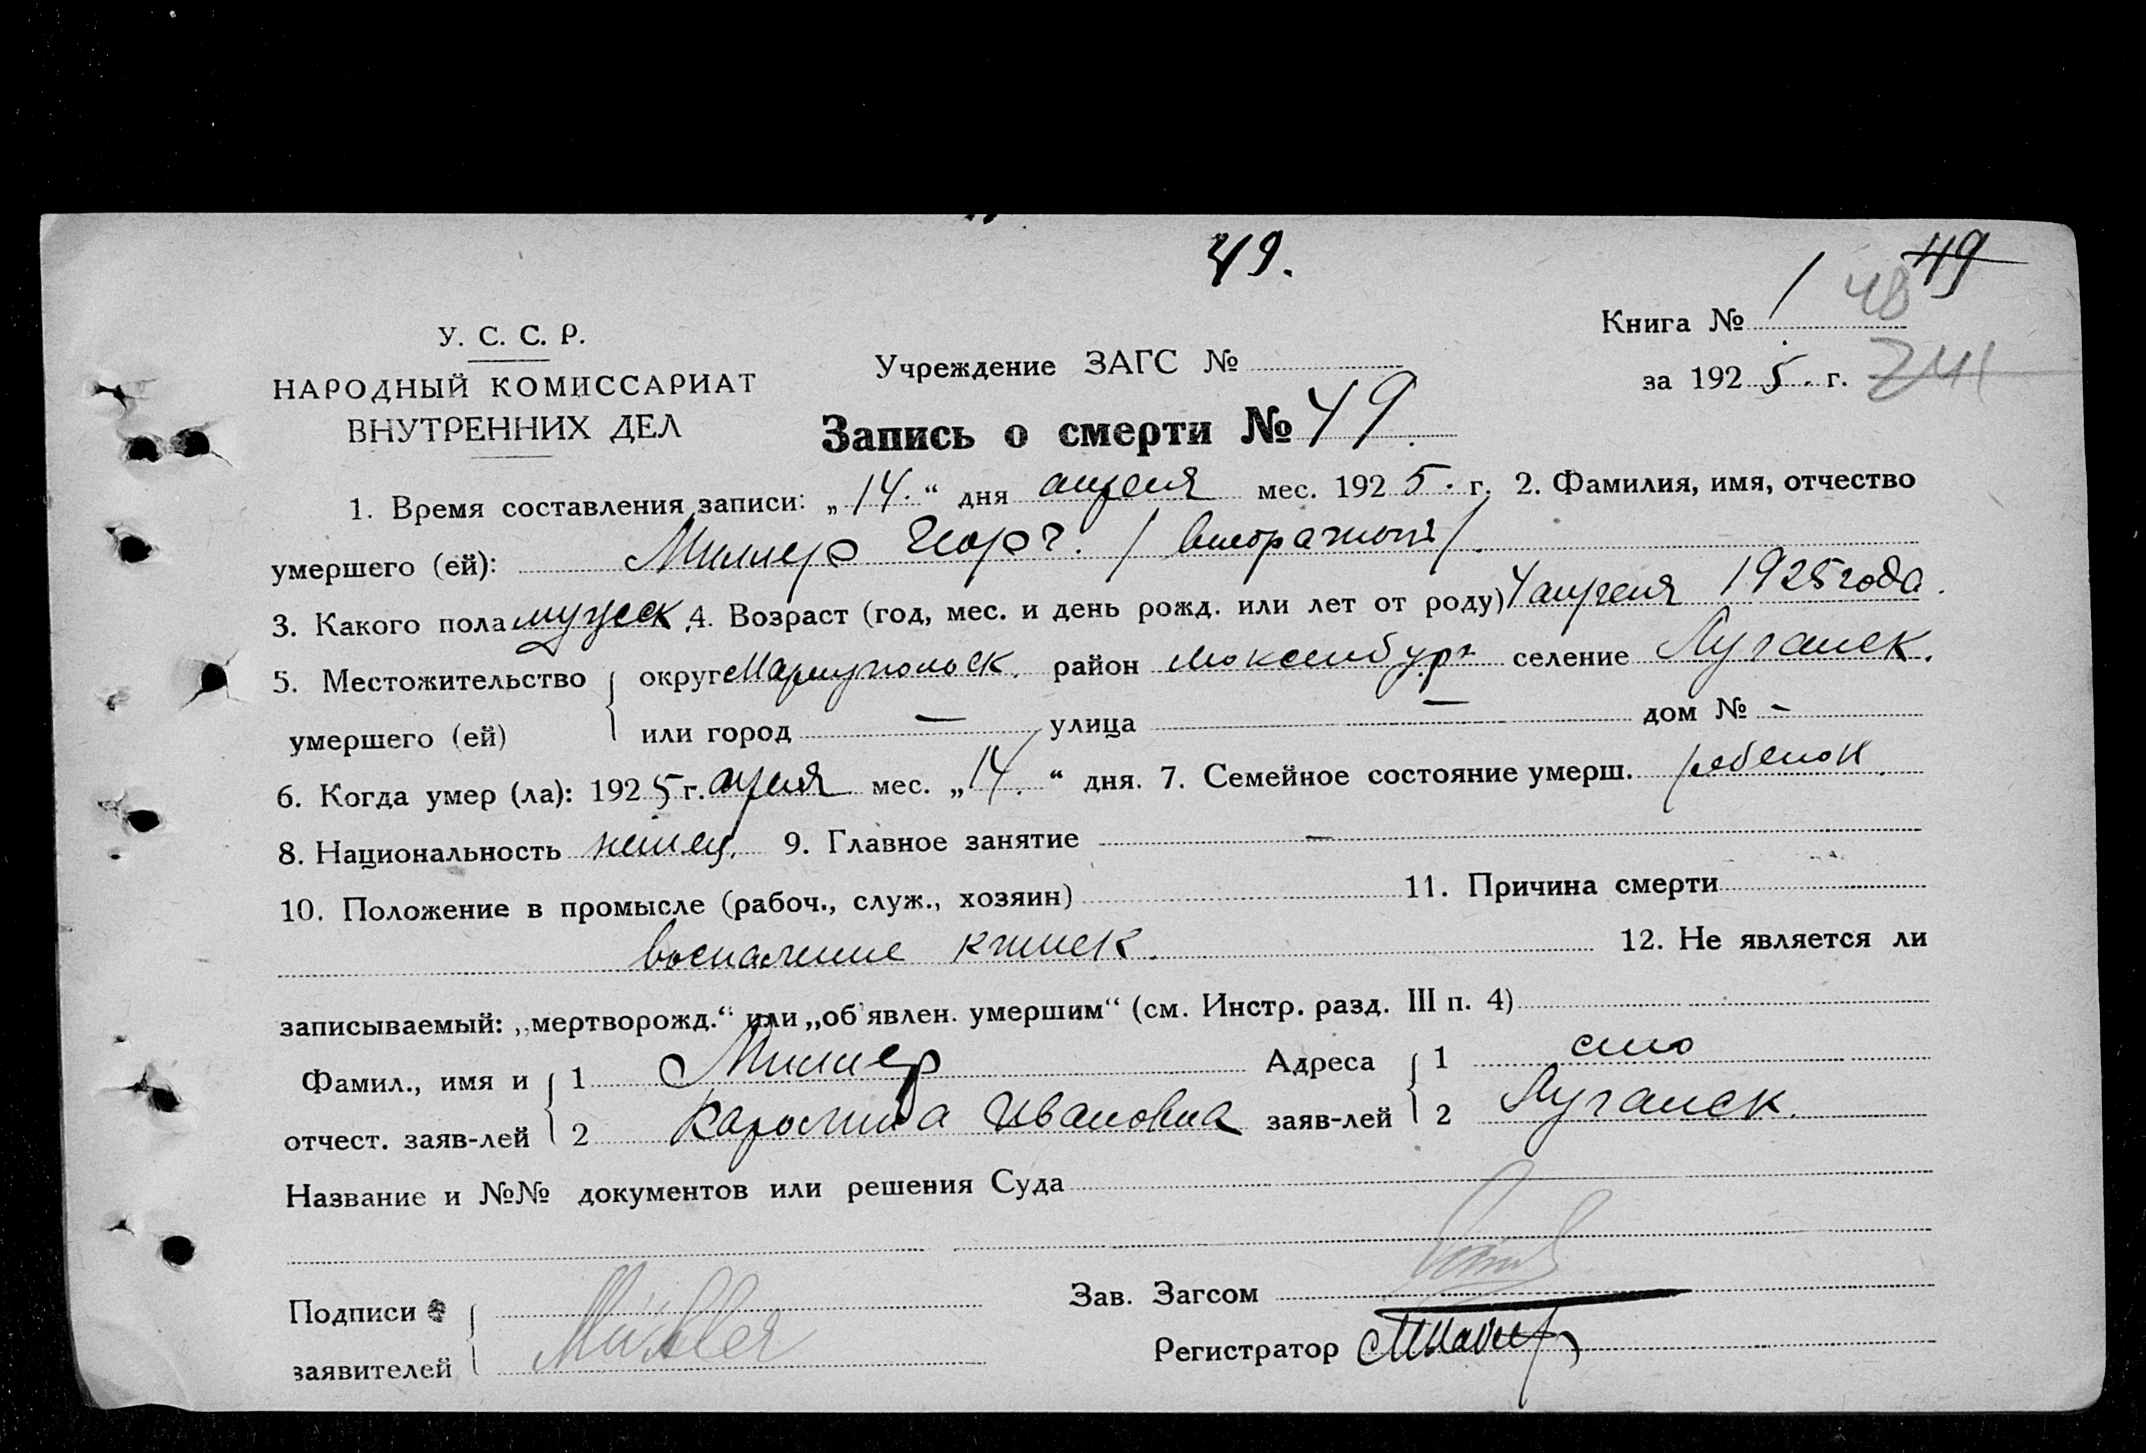 49.
49
48
Книга № 1
У. С. С. Р.
НАРОДНЫЙ КОМИССАРИАТ
ВНУТРЕННИХ ДЕЛ
Учреждение ЗАГС №
за 1925. г.
241
Запись о смерти № 49.
1. Время составления записи: „14.“ дня апреля мес. 1925. г. 2. Фамилия, имя, отчество
умершего (ей): Миллер Георг.
3. Какого пола мужск. 4. Возраст (год, мес. и день рожд. или лет от роду) 4 апреля 1925 года.
5. Местожительство округ Мариупольск. район Люксембург селение Луганск.
умершего (ей) или город — улица — дом № —
6. Когда умер (ла): 1925 г. апреля мес. „14.“ дня. 7. Семейное состояние умерш. ребенок.
8. Национальность немец. 9. Главное занятие —
10. Положение в промысле (рабоч., служ., хозяин) 11. Причина смерти
воспаление кишек. 12. Не является ли
записываемый: „мертворожд.“ или „об'явлен. умершим“ (см. Инстр. разд. III п. 4)
Фамил., имя и 1 Миллер Адреса 1 село
отчест. заяв-лей 2 Каролина Ивановна заяв-лей 2 Луганск.
Название и №№ документов или решения Суда
Зав. Загсом
Подписи
Müller
Регистратор
заявителей